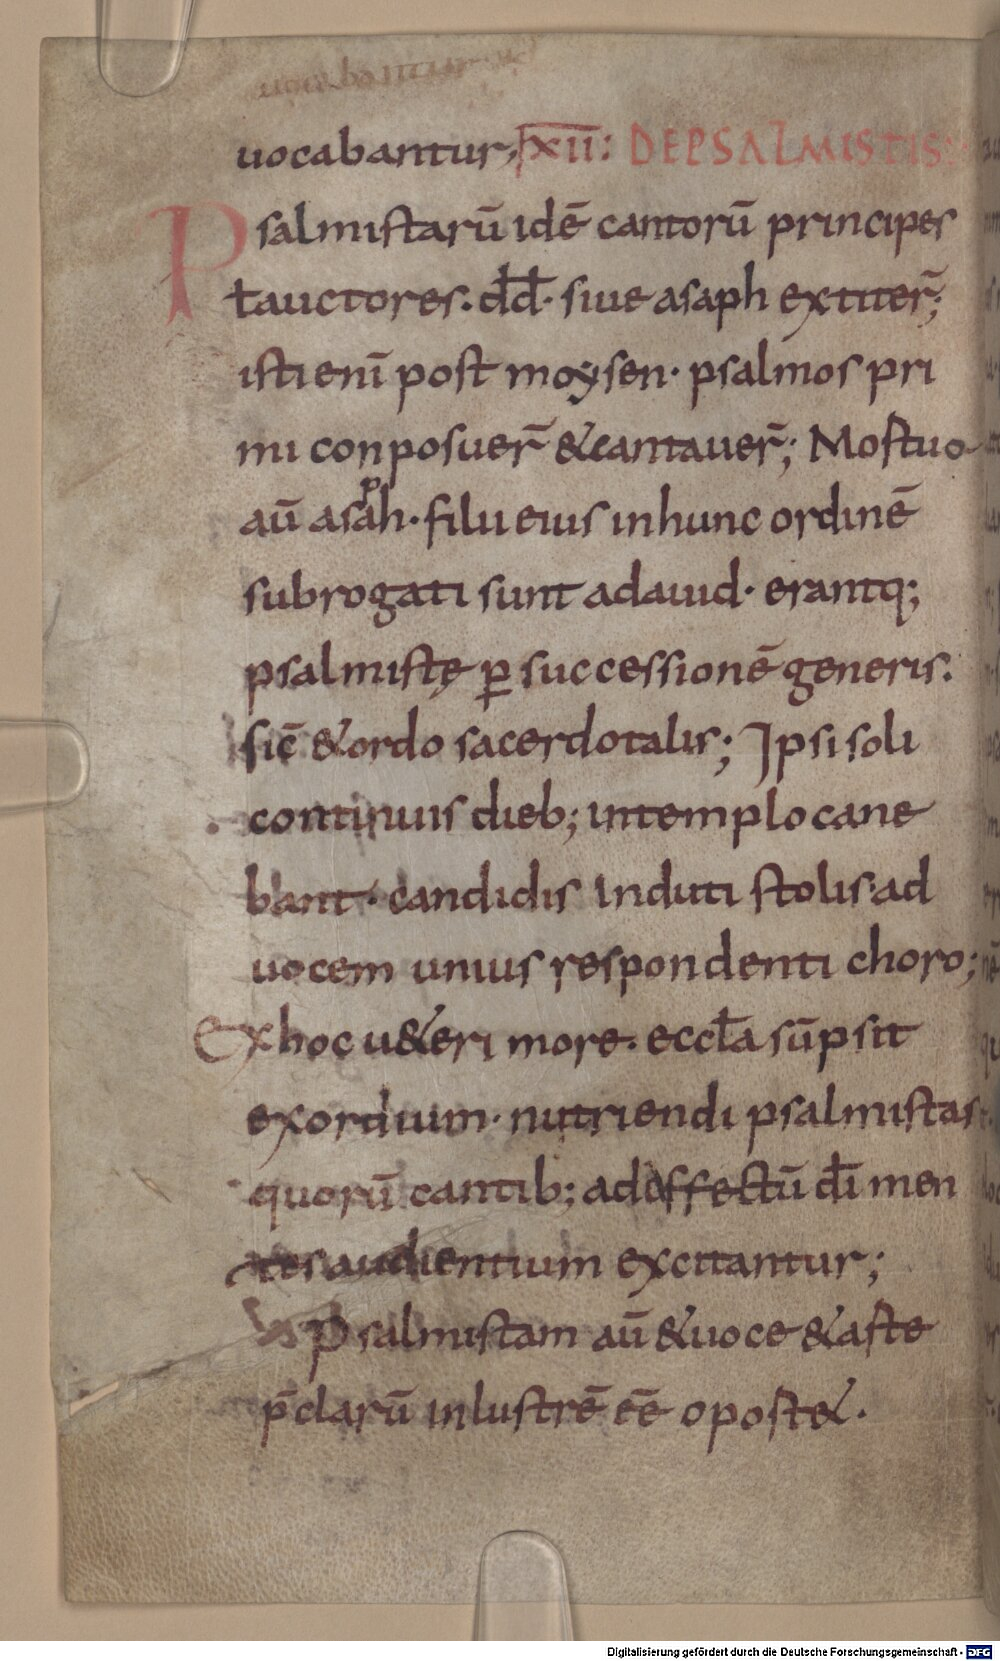 uocabantur
uocabantur; xii: DE PSALMISTIS:
Psalmistarū idē cantorū principes
ł auctores. dd̄· siue asaph extiter̄;
isti enī post moysen· psalmos pri
mi conposuer̄ & cantauer̄; Mostuo
aū asaph· filii eius in hunc ordinē
subrogati sunt adauid· erantq;
psalmistę ꝑ successionē generis.
sic̄ & ordo sacerdotalis; Ipsi soli
continuis dieb; in templo cane
bant· candidis induti stolis· ad
uocem unius respondenti choro;
Ex hoc u&eri more· eccła sūpsit
exordium· nutriendi psalmistas
quorū cantib; ad effectū dī men
tes audientium excitantur;
Psalmistam aū & uoce & aste
p̄clarū inlustrē eē oport&·
Digitalisierung gefördert durch die Deutsche Forschungsgemeinschaft - DFG